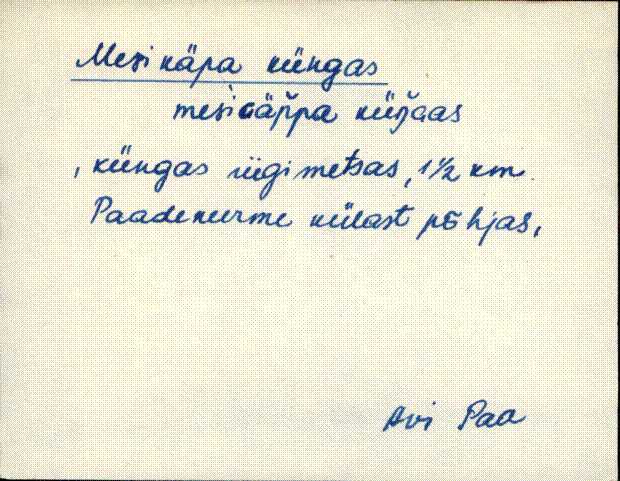 Mesikäpa küngas
mesiGäp̆pa küŋ̆Gas
, küngas riigimetsas, 1½ km
Paadenurme külast põhjas,
Avi Paa